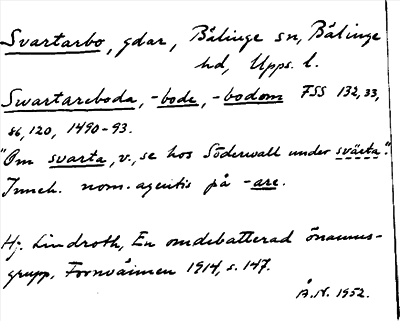 Svartarbo, gdar, Bälinge sn, Bälinge
hd, Upps. l.
Swartareboda, -bode, -bodom FSS 132, 33,
86, 120, 1490-93.
"Om svarta, v., se hos Söderwall under svärta."
Inneh. nom. agentis på -are.
Hj. Lindroth, En omdebatterad önamns-
grupp, Fornvännen 1914, s. 147.
Å.N. 1952.